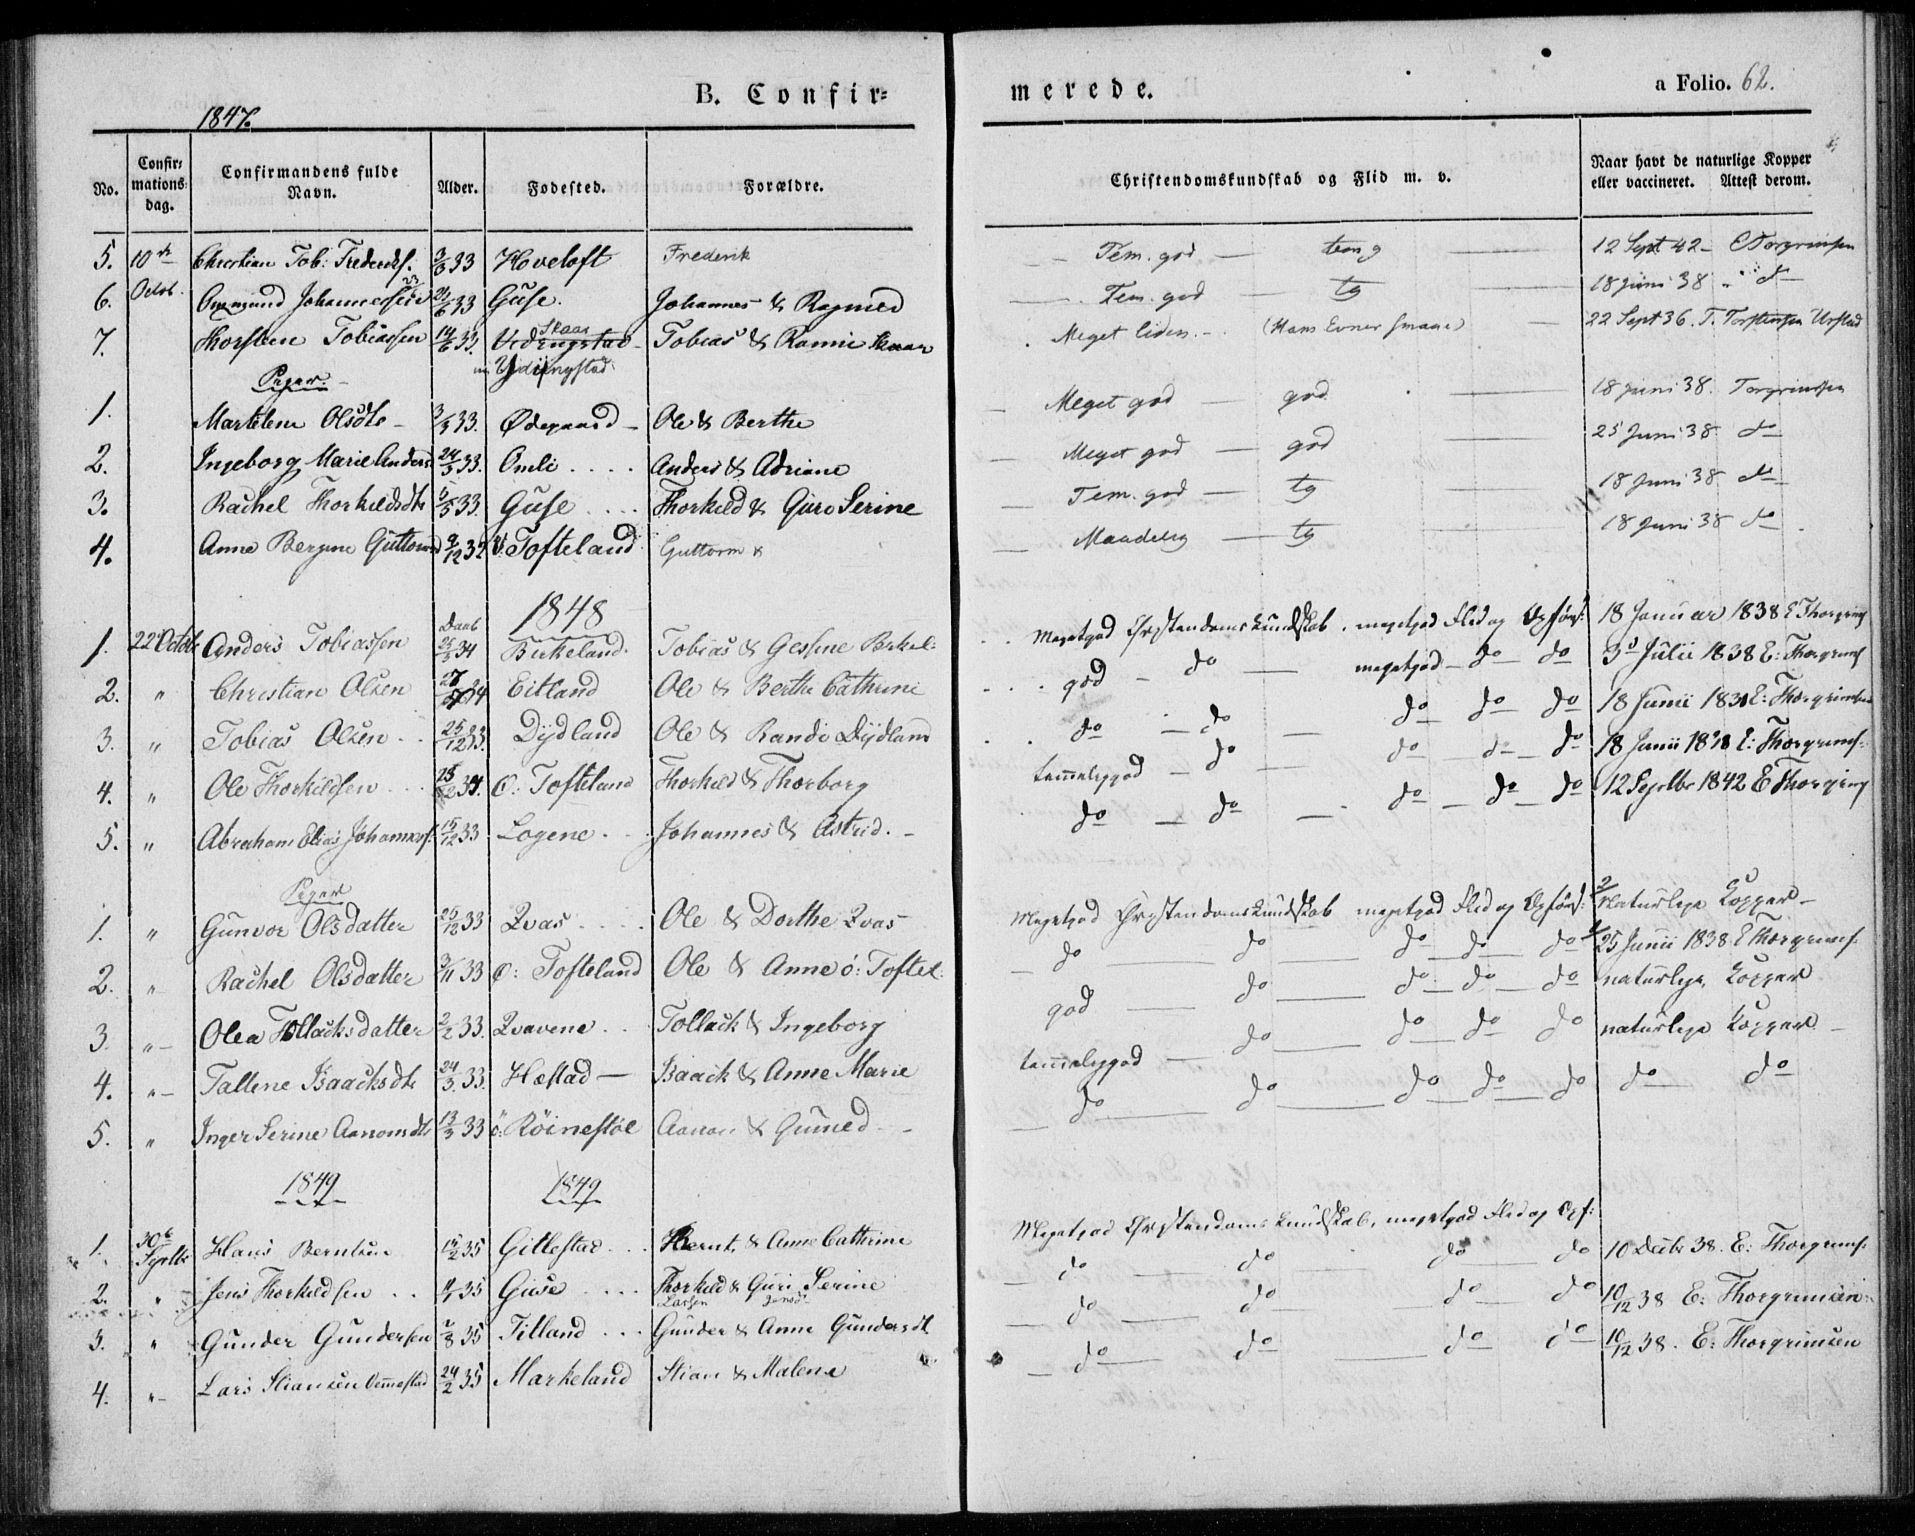 B. Confir=
merede.
a Folio. 62.
1847.
No. Confir=mations=dag. Confirmandens fulde Navn. Alder. Fødested. Forældre. Christendomskundskab og Flid m. v. Naar havt de naturlige Kopper eller vaccineret. Attest derom.
5. 10de Octob. Christian Tob: Frederiks. 3/6 33 Hoveloft Frederik Tem. god — 12 Sept 42 — E Torgrimsen
6. 33 Guse. Johannes & Ragnild Tem. god — tg 18 juni 38 " do
7. Thorsteen Tobiassen 14/6 33. Skaar Tobias & Rannie Skaar Meget liden. (Hans Evner smaae) 22 Sept 36. T. Torstensen
Piger.
1. Martilene Olsdtr — 3/3 33. Ødegaard — Ole & Berthe Meget god — god 18 juni 38. Torgrimsen
2. Ingeborg Marie Anders 24/3 33. Omli .... Anders & Adriane Meget god — god 25 Juni 38 do
3. Rachel Thorkildsdtr 5/5 33. Guse .... Thorkild & Guro Serine Tem. god — tg 18 Juni 38 do
4. Anne Bergine Guttorms 9/12 32 V: Tofteland Guttorm & Maadelig — tg 18 Juni 38 do
1848
1. 22 Octobr Anders Tobiassen Daab 25/3 34 Birkeland. Tobias & Gesine Birkel: Megetgod Christendomskundskab. megetgod Flid og Opførs: 18 Januar 1838 E Thorgrims
2. " Christian Olsen 34 Eitland Ole & Berthe Cathrine god — do — megetgod — do do 3d Julii 1838 E: Thorgrims
3. " Tobias Olsen .. 25/12 33. Dydland Ole & Randi Dydland do — do do do do 18 Junii 1838 E: Thorgrimsen
4. " Ole Thorkildsen ... 34. Ø: Tofteland Thorkild & Thorborg temmeliggod — do do do do 18 Junii 1838 E: Thorgrims:
5. " Abraham Elias Johannes: 15/12 33 Logene ... Johannes & Astrid. — do — do — do — do — do 12 Septbr 1842 E Thorgrims
Piger
1. " Gunvor Olsdatter 25/12 33 Qvas .... Ole & Dorthe Qvas Megetgod Christendomskundskab megetgod Flid og Opførs: Naturlige Kopper —
2. " Rachel Olsdatter 3/11 33 Ø: Tofteland Ole & Anne ø: Toftel: do do do do do 25 Junii 1838 E Thorgrims:
3. " Olea Tollacksdatter 2/2 33. Qvavene .. Tollack & Ingeborg god — do — do — do — do naturlige Kopper
4. " Tallene Isaacksdtr 24/3 33. Hæstad — Isaack & Anne Marie temmeliggod — do — do do do naturlige Kopper —
5. " Inger Serine Aanonsdtr 13/3 33 ø: Röinestöl Aanon & Guned — do — do — do do do do do
1849 1849
1. 30te Septbr Hans Berntsen 15/2 35 Gitlestad ... Bernt & Anne Cathrine Megetgod Christendomskundskab, megetgod Flid og Opf:
2. " Jens Thorkildsen .. 35 Guse .... Thorkild Larsen & Guri Jensd Serine do do do do 10 Decbr 38. E: Thorgrims:
3. " Gunder Gundersen 35 Titland ... Gunder & Anne Gundersdt do do do do 10/12 38 E: Thorgrimsen
4. " Lars Stiansen Vemestad 24/2 35 Markeland Stian & Malene do do do do 10/12 38. E: Thorgrimsen